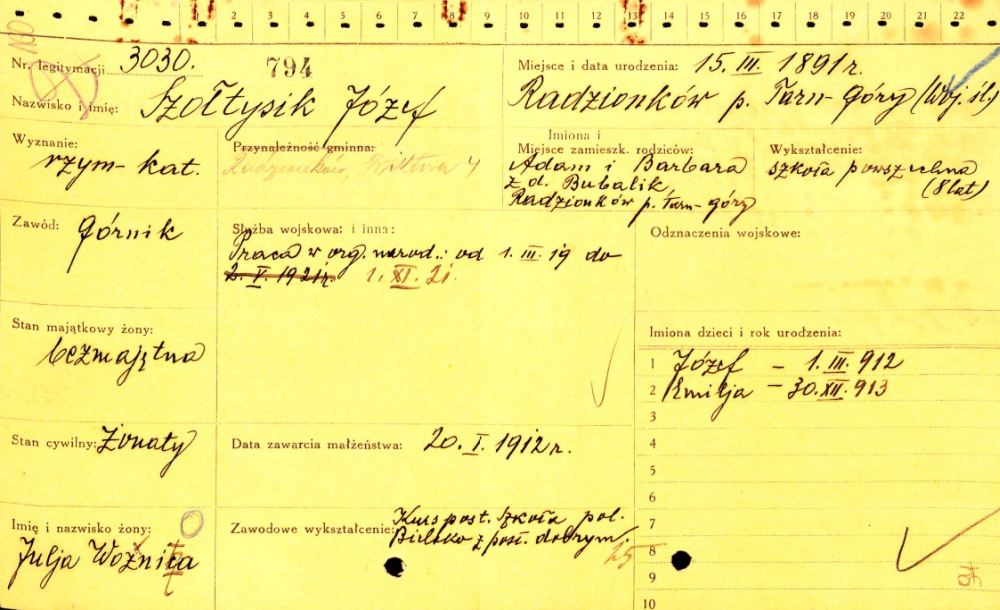 2 3 4 5 6 7 8 9 10 11 12 13 14 15 16 17 18 19 20 21 22
Nr. legitymacji 3030.
794
Nazwisko i imię: Szołtysik Józef
Miejsce i data urodzenia: 15. III. 1891 r.
Radzionków p. Tarn-Góry (Woj. śl.)
Wyznanie:
rzym-kat.
Przynależność gminna:
Radzionków,
4
Imiona i
Miejsce zamieszk. rodziców:
Adam i Barbara
z d. Bubalik
Radzionków p. Tarn-góry
Wykształcenie:
szkoła powszechna
(8 lat)
Zawód: górnik
Służba wojskowa: i inna:
Praca w org. narod.: od 1. III. 19 do
2. V. 1921 r. 1. XI. 21.
Odznaczenia wojskowe:
Stan majątkowy żony:
bezmajętna
Imiona dzieci i rok urodzenia:
1 Józef – 1. III. 912
2 Emilja – 30. XII. 913
3
4
5
6
7
8
9
10
Stan cywilny: Żonaty
Data zawarcia małżeństwa: 20. I. 1912 r.
Imię i nazwisko żony:
Julja Woźnica
Zawodowe wykształcenie: Kurs post. Szkoła pol.
Bielsko z post. dobrym.